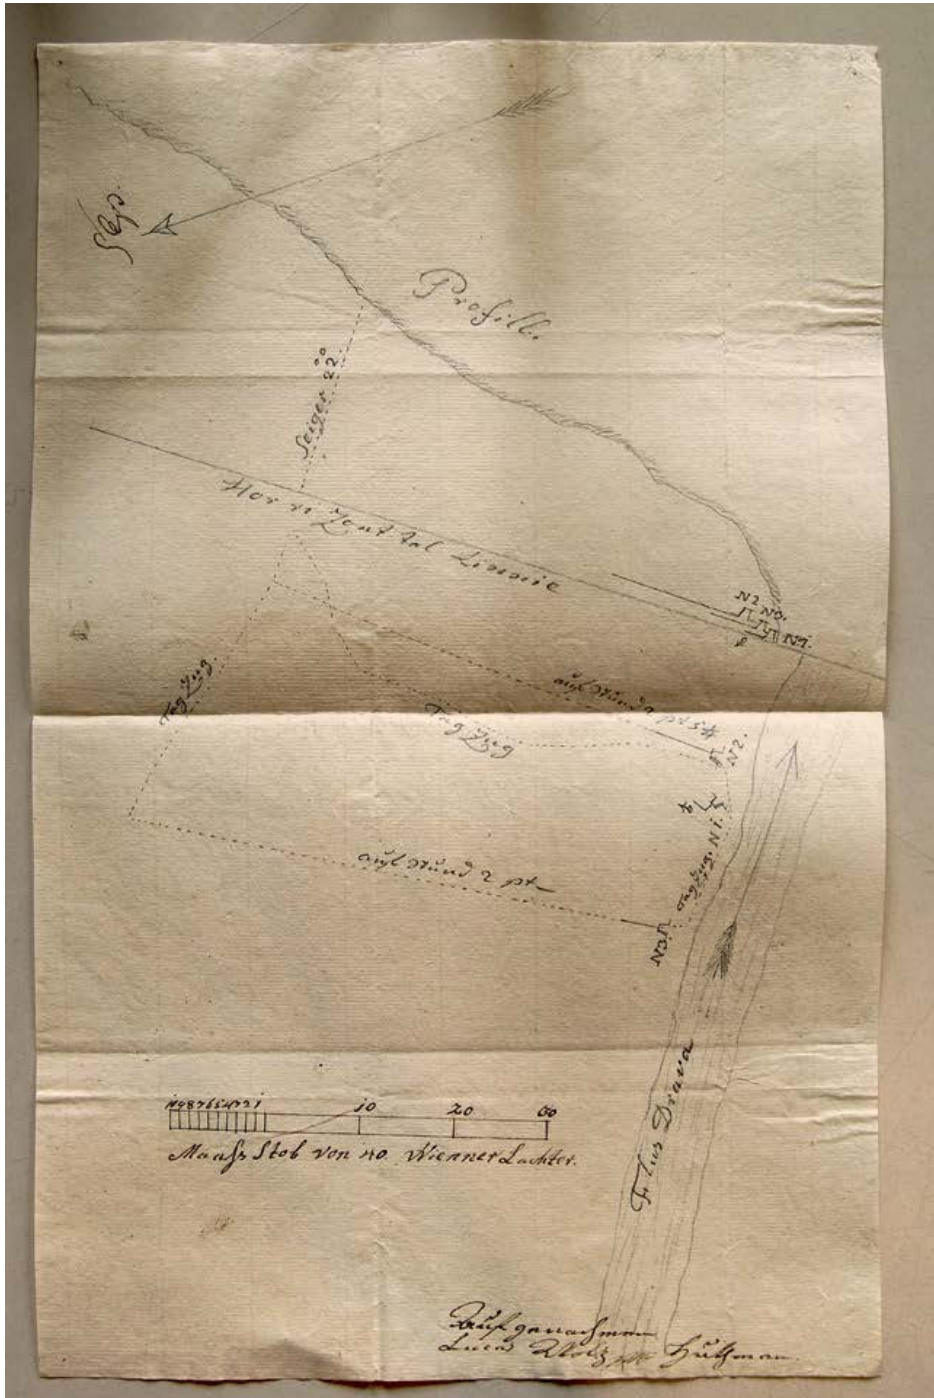 Profill.
Seiger 22.
Hor ri Zont tal Linnie
N2 N3.
N1.
Tag Zug.
Tag Zug
auf Stund 2 pt 5/4
N2.
N1.
Tag Zug.
auf Stund 2 pt
N3.
Flus Drava
10 9 8 7 6 5 4 3 2 1 10 20 30
Maass Stob von 40 Wienner Lachter.
Auf genachmen
Lucas Huthman.